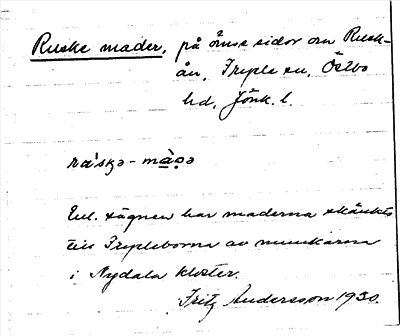 Ruske mader, på ömse sidor om Rusk-
ån, Fryele sn, Östbo
hd, Jönk. l.
Enl. sägnen har maderna skänkts
till Fryeleborna av munkarna
i Nydala kloster.
Fritz Andersson 1930.